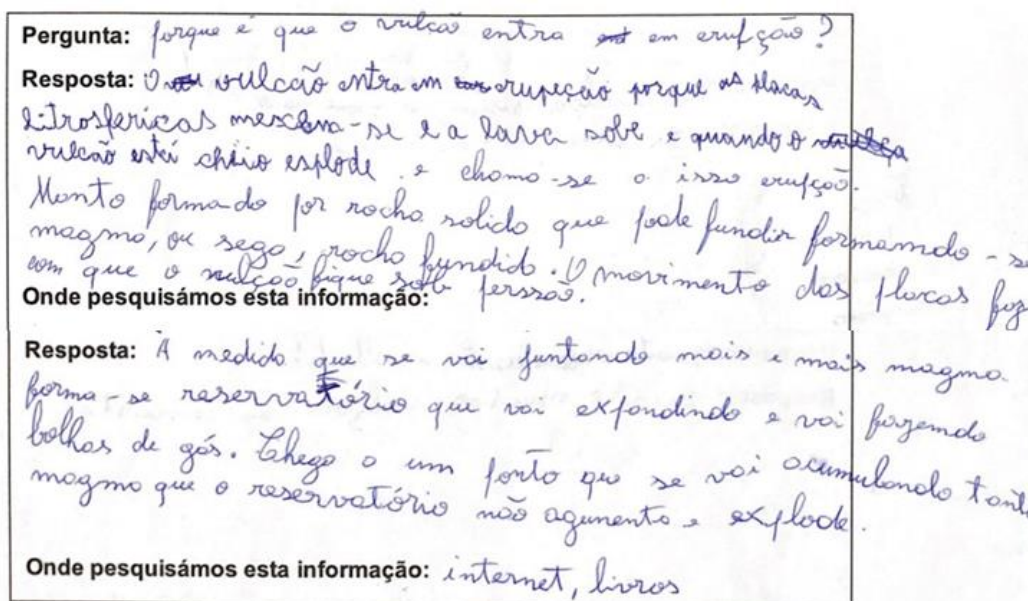 Pergunta: porque é que o vulcão entra em erupção?
Resposta: O vulcão entra em erupeção porque as placas
Litrosfericas mexem-se e a lava sobe e quando o
vulcão está cheio esplode. e chama-se a isso erupção.
Manto formado por rocha solida que pode fundir formamdo-se
magma, ou sega, rocha fundida. O movimento das placas faz
com que o vulção fique sob perssão.
Onde pesquisámos esta informação:
Resposta: A medida que se vai juntando mais e mais magma.
forma-se reservatório que vai expandindo e vai fazemdo
bolhas de gás. Chega a um ponto que se vai acumulando tanto
magma que o reservatório não aguenta e explode.
Onde pesquisámos esta informação: internet, livros